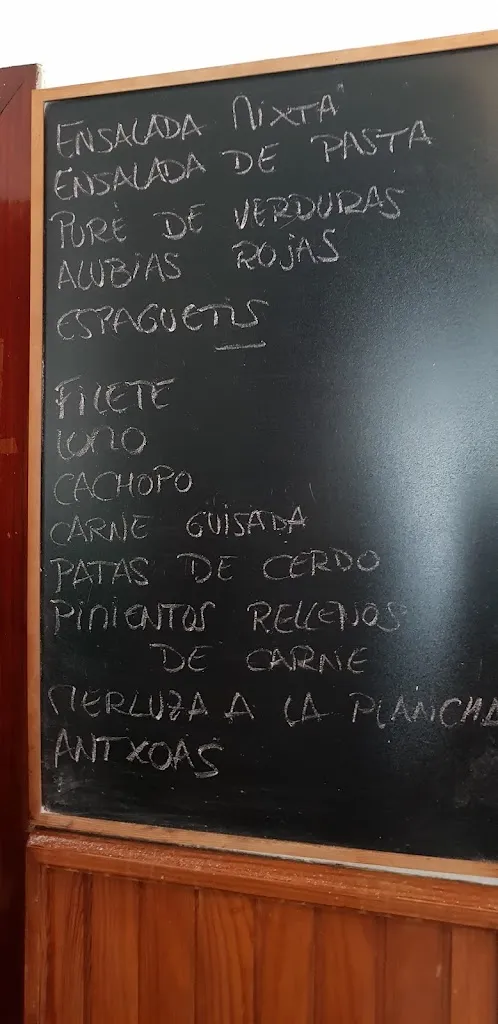 ENSALADA MIXTA
ENSALADA DE PASTA
PURÉ DE VERDURAS
ALUBIAS ROJAS
ESPAGUETIS
FILETE
LOMO
CACHOPO
CARNE GUISADA
PATAS DE CERDO
PIMIENTOS RELLENOS
DE CARNE
MERLUZA A LA PLANCHA
ANTXOAS